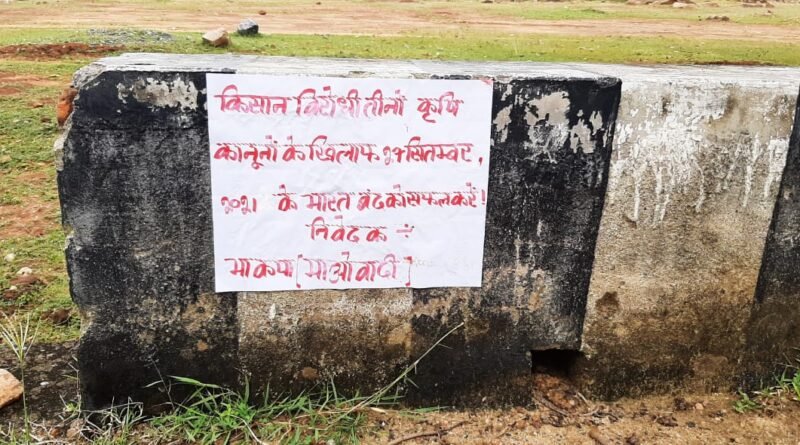 किसान विरोधी तीनों कृषि
कानूनों के खिलाफ २७ सितम्बर,
२०२१ के भारत बंद को सफल करें!
निवेदक ÷
भाकपा [माओवादी]